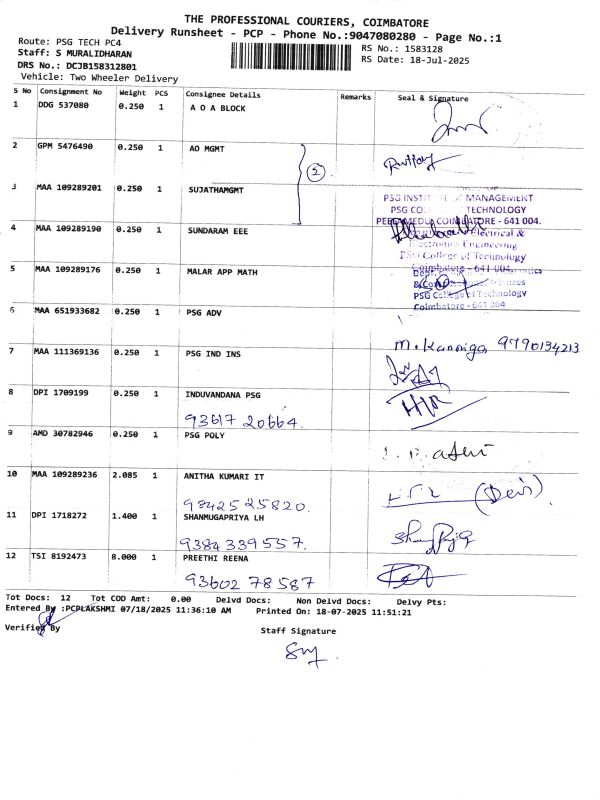 THE PROFESSIONAL COURIERS, COIMBATORE
Delivery Runsheet - PCP - Phone No.:9047080280 - Page No.:1
Route: PSG TECH PC4
RS No.: 1583128
Staff: S MURALIDHARAN
RS Date: 18-Jul-2025
DRS No.: DCJB158312801
Vehicle: Two Wheeler Delivery
S No Consignment No Weight PCS Consignee Details Remarks Seal & Signature
1 DDG 537080 0.250 1 A O A BLOCK
2 GPM 5476490 0.250 1 AO MGMT
2
3 MAA 109289201 0.250 1 SUJATHAMGMT
PSG INSTITUTE OF MANAGEMENT
PSG COLLEGE OF TECHNOLOGY
PEELAMEDU, COIMBATORE - 641 004.
4 MAA 109289190 0.250 1 SUNDARAM EEE
Electrical &
Electronics Engineering
PSG College of Technology
Coimbatore - 641 004.
5 MAA 109289176 0.250 1 MALAR APP MATH
Dept.
Sciences
PSG College of Technology
Coimbatore - 641 004
6 MAA 651933682 0.250 1 PSG ADV
7 MAA 111369136 0.250 1 PSG IND INS
M. Kanniga 9790134213
8 DPI 1709199 0.250 1 INDUVANDANA PSG
93617 20664.
9 AMD 30782946 0.250 1 PSG POLY
10 MAA 109289236 2.085 1 ANITHA KUMARI IT
98425 25820.
(Devi)
11 DPI 1718272 1.400 1 SHANMUGAPRIYA LH
9384 339557.
12 TSI 8192473 8.000 1 PREETHI REENA
93602 78587
Tot Docs: 12 Tot COD Amt: 0.00 Delvd Docs: Non Delvd Docs: Delvy Pts:
Entered By :PCPLAKSHMI 07/18/2025 11:36:10 AM Printed On: 18-07-2025 11:51:21
Verified By
Staff Signature